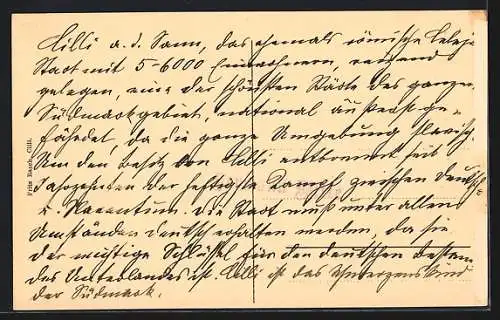 Cilli a. d. Sann, das ehemals römische Celeja
Stadt mit 5-6000 Einwohnern, reizend
gelegen, eine der schönsten Städte des ganzen
Südmarkgebiet, national äußerst ge-
fährdet, da die ganze Umgebung slavisch.
Um den Besitz von Cilli entbrennt seit
Jahrzehnten der heftigste Kampf zwischen Deutsch-
u. Slaventum. Die Stadt muß unter allen
Umständen deutsch erhalten werden, da sie
der wichtige Schlüssel für den deutschen Bestand
des Unterlandes ist. Cilli ist das Schmerzenskind
der Südmark.
Fritz Rasch, Cilli.